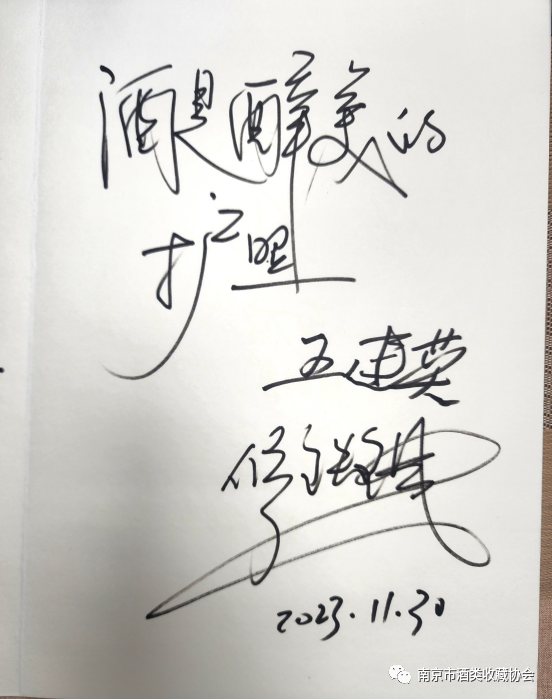 酒是醉美的
护照
2023.11.30
南京市酒类收藏协会